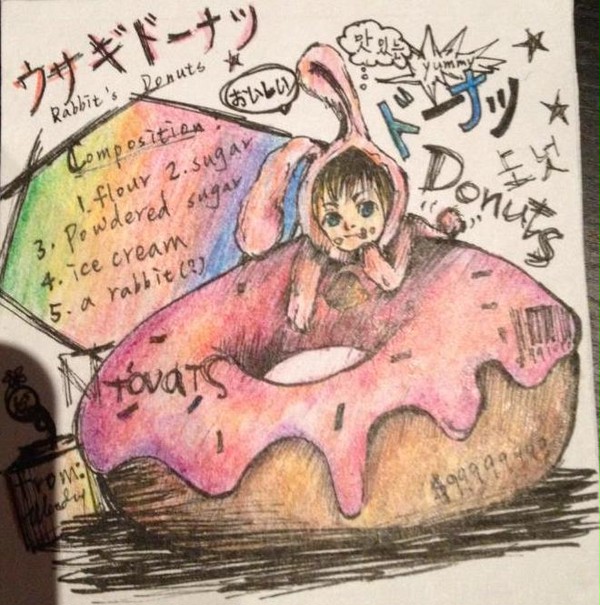 ウサギドーナツ
Rabbit's Donuts
おいしい
맛있는
yummy
ドーナツ
도넛
Donuts
Composition:
1. flour 2. sugar
3. Powdered sugar
4. ice cream
5. a rabbit(?)
From: